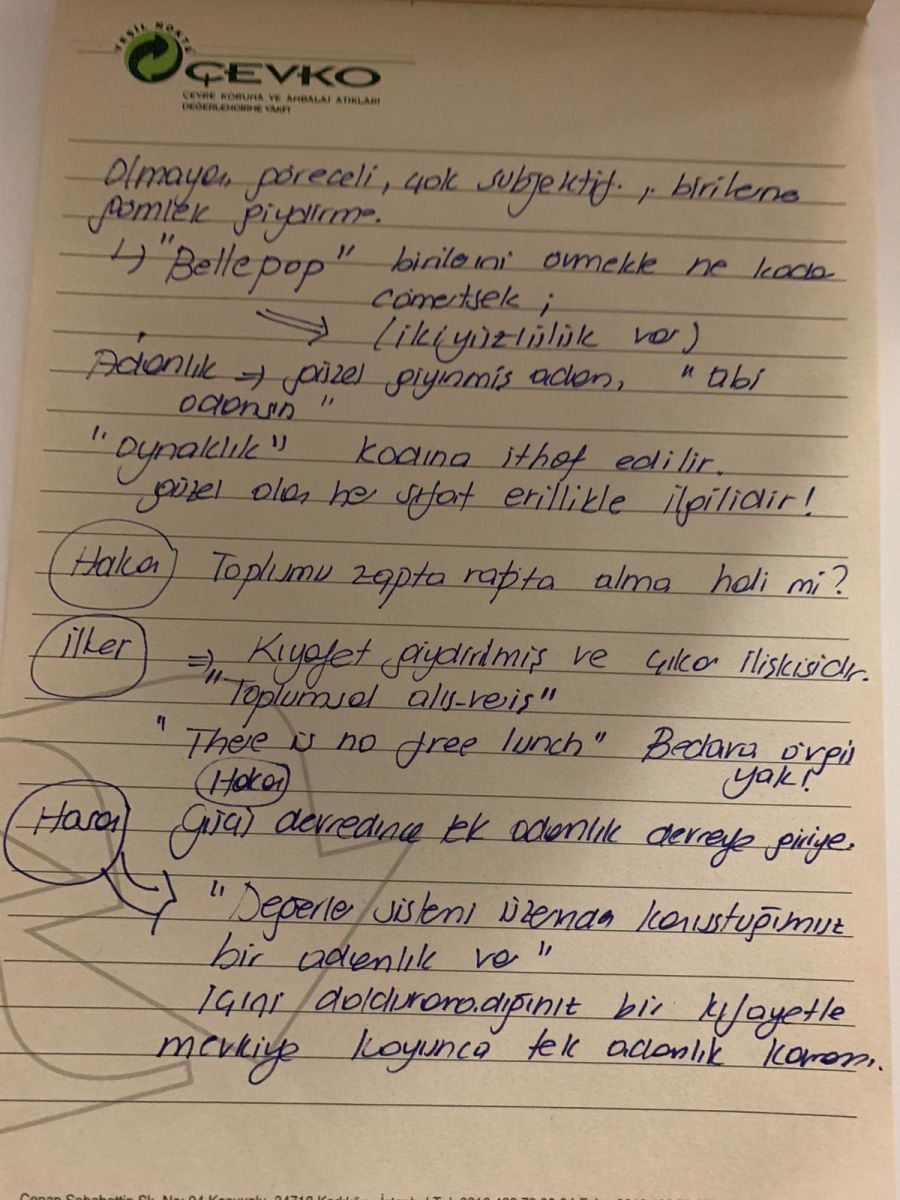 YEŞİL NOKTA
ÇEVKO
ÇEVRE KORUMA VE AMBALAJ ATIKLARI
DEĞERLENDİRME VAKFI
Olmayan göreceli, çok subjektif. , birilerine
gömlek giydirme.
↳ "Bellepop" birilerini övmekle ne kadar
cömertsek ;
⇒ (ikiyüzlülük var)
Adanlık ⇒ güzel giyinmiş adam, "abi
adamsın"
"oynaklık" kadına ithaf edilir.
güzel olan her sıfat erillikle ilgilidir!
Hakan Toplumu zapta rapta alma hali mi?
ilker ⇒ Kıyafet giydirilmiş ve çıkar ilişkisidir.
"Toplumsal alış-veriş"
"There is no free lunch" Bedava övgü
Hakan yok!
Hasan Gücü devredince tek adamlık devreye giriyor.
"Değerler sistemi üzerinden konuştuğumuz
bir adamlık var"
İçini dolduramadığınız bir kifayetle
mevkiye koyunca tek adamlık kavramı.